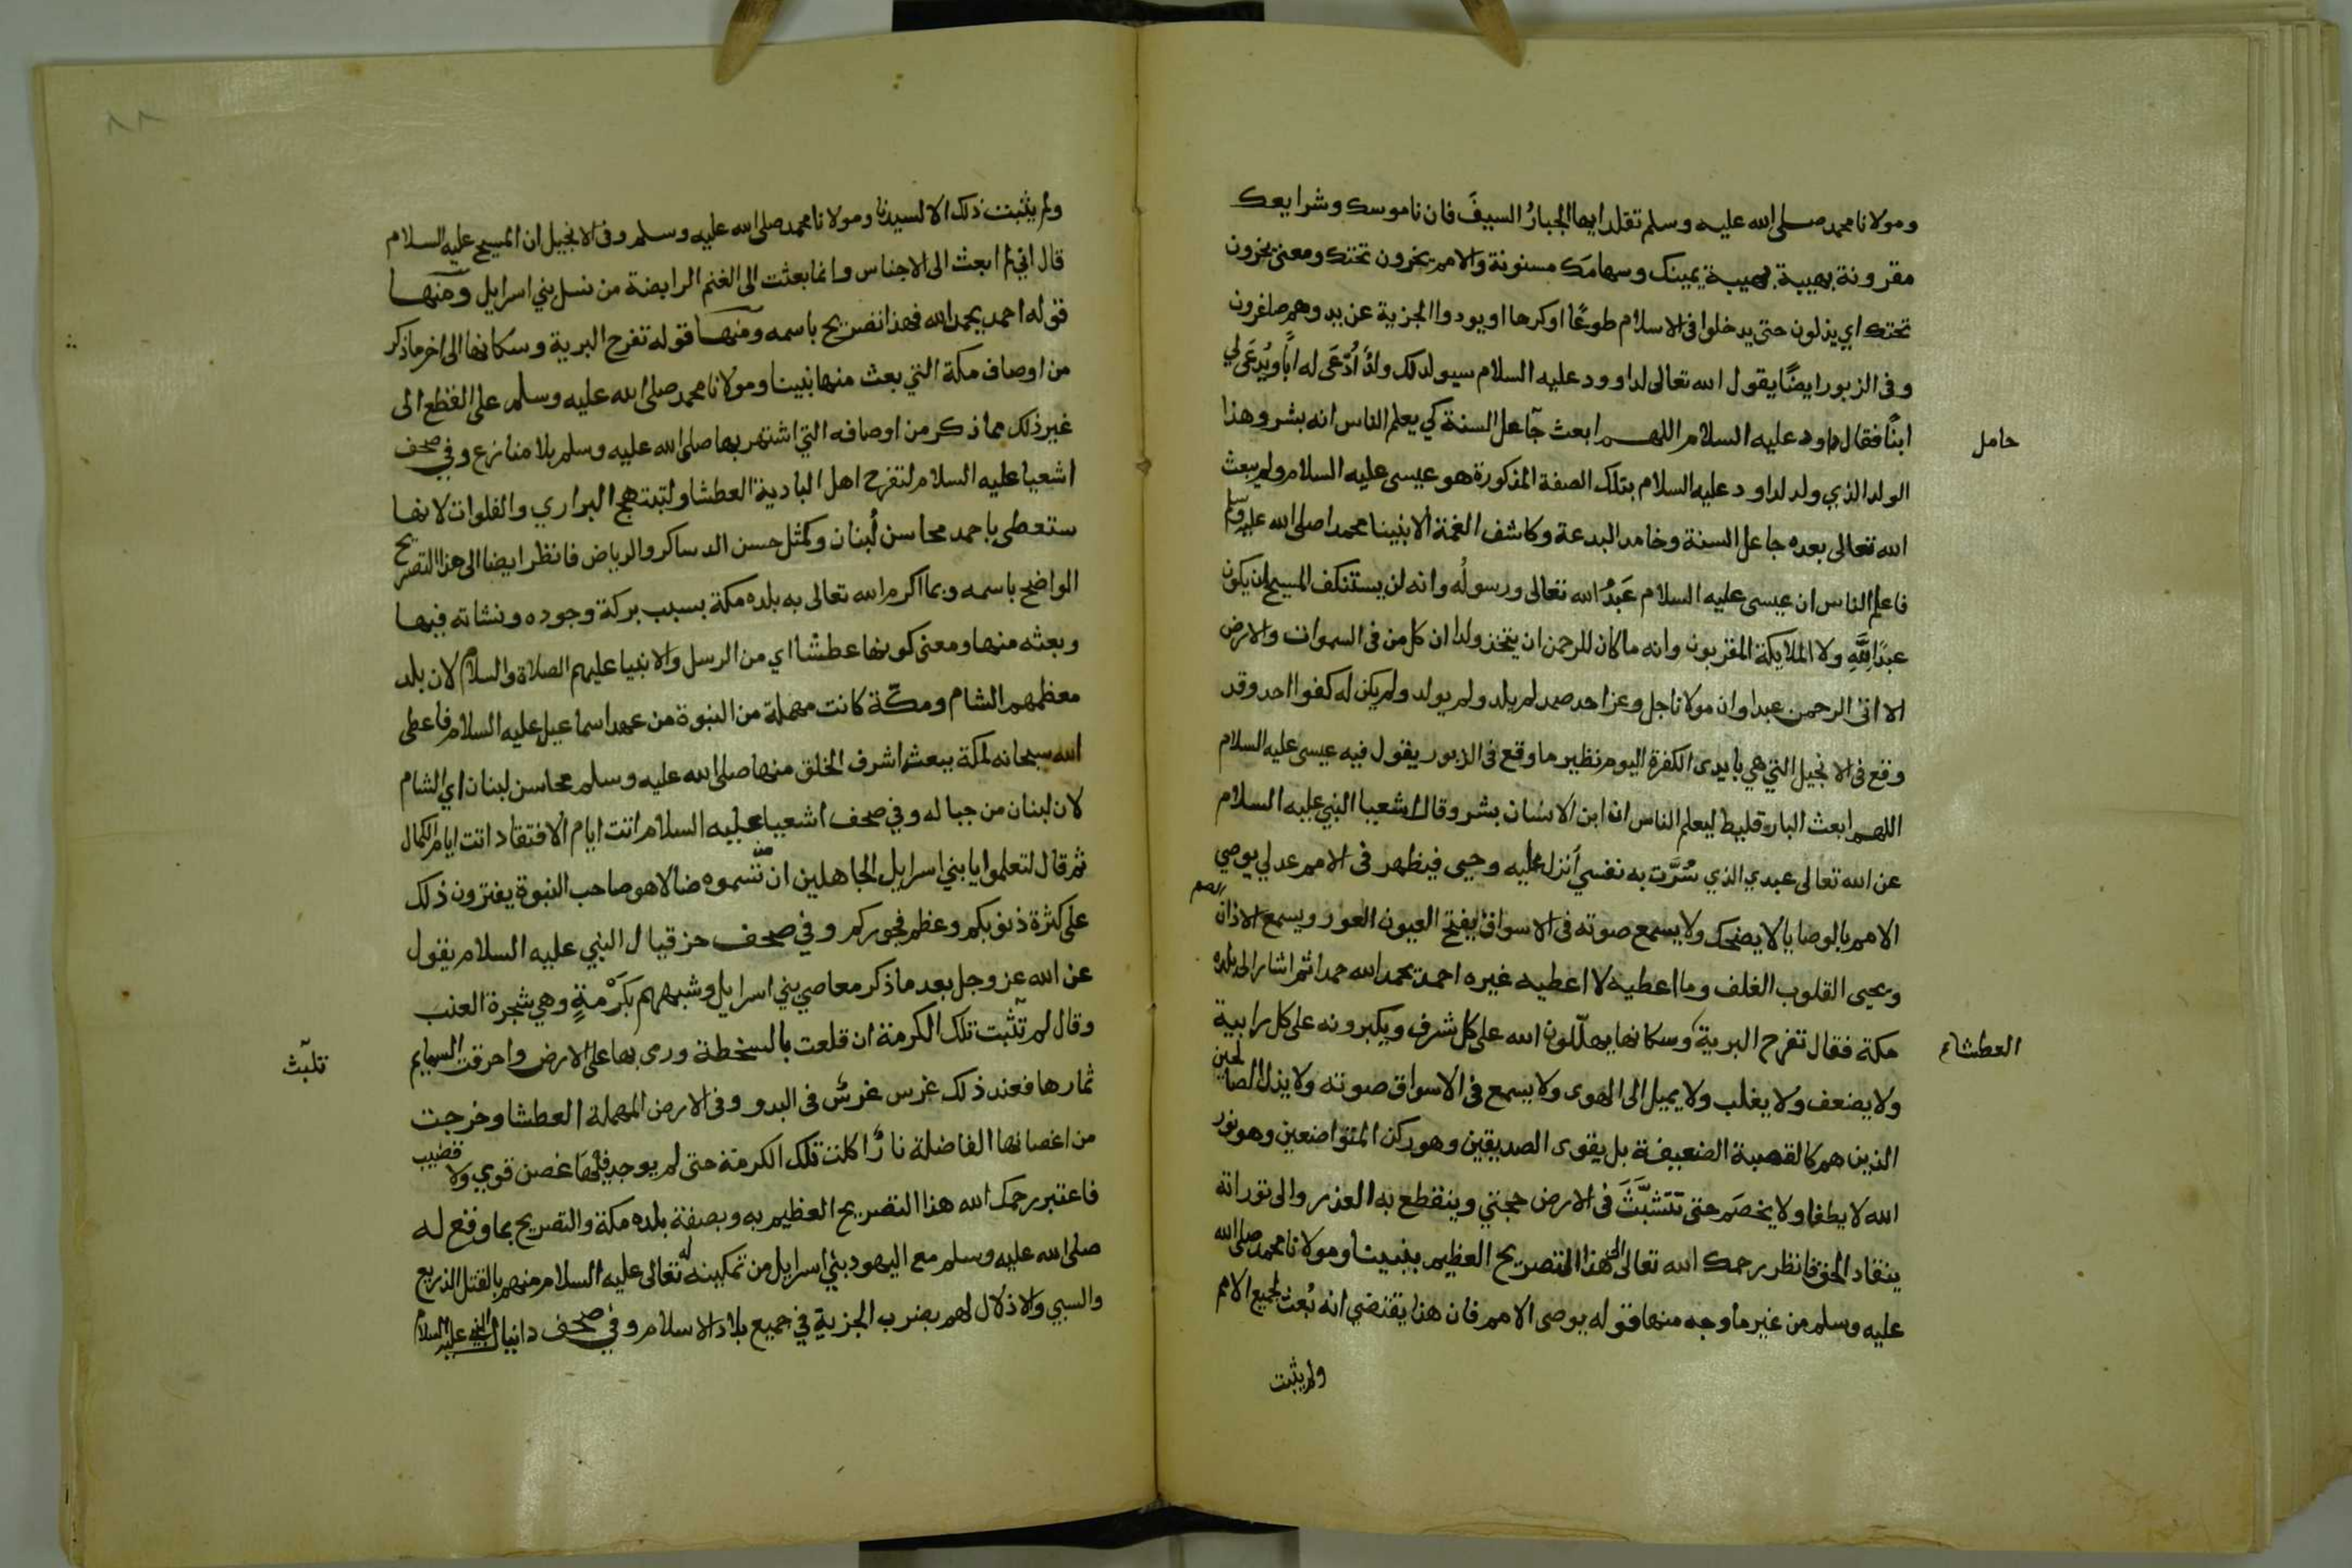 ومولانا محمد صلى الله عليه وسلم تقلد ايها الجبارُ السيفَ فان ناموسك وشرايعك
مقرونة بهيبة يمينك وسهامَك مسنونة والامم يخرون تحتك ومعنى يخرون
تحتك اي يذلون حتى يدخلوا في الاسلام طوعًا او كرها او يودوا الجزية عن يد وهم صاغرون
وفي الزبور ايضًا يقول الله تعالى لداوود عليه السلام سيولد لك ولدٌ أُدّعَى له ابًا ويُدعَى لي
ابنًا فقال داود عليه السلام اللهم ابعث جاعل السنة كي يعلم الناس انه بشر وهذا
حامل
الولد الذي ولد لداود عليه السلام بتلك الصفة المذكورة هو عيسى عليه السلام ولم يبعث
الله تعالى بعده جاعل السنة وخامد البدعة وكاشف الغمة الا نبينا محمدا صلى الله عليه وسلم
فاعلم الناس ان عيسى عليه السلام عَبدُ الله تعالى ورسولُه وانه لن يستنكف المسيح ان يكون
عبدًا لِلَّهِ ولا الملايكة المقربون وانه ما كان للرحمن ان يتخذ ولدا ان كل من في السموات والارض
الا اتى الرحمن عبدا وان مولانا جل وعز احد صمد لم يلد ولم يولد ولم يكن له كفوا احد وقد
وقع في الانجيل التي هي بايدي الكفرة اليوم نظير ما وقع في الزبور يقول فيه عيسى عليه السلام
اللهم ابعث البارقليط ليعلم الناس ان ابن الانسان بشر وقال اشعيا النبي عليه السلام
عن الله تعالى عبدي الذي سُرَّت به نفسي أنزل عليه وحيي فيظهر في الامم عدلي يوصي
الامم بالوصايا لا يضحك ولا يسمع صوته في الاسواق يفتح العيون العور ويسمع الاذان
الصم
ويحيي القلوب الغلف وما اعطيه لا اعطيه غيره احمد يحمد الله حمدا ثم اشار الى بلده
مكة فقال تفرح البرية وسكانها يهللون الله على كل شرف ويكبرونه على كل رابية
العطشاء
ولا يضعف ولا يغلب ولا يميل الى الهوى ولا يسمع في الاسواق صوته ولا يذل الصالحين
الذين هم كالقصبة الضعيفة بل يقوى الصديقين وهو ركن المتواضعين وهو نور
الله لا يطفا ولا يخصَم حتى تَتَشبَّثَ في الارض حجتي وينقطع به العذر والى توراته
ينقاد الحق فانظر رحمك الله تعالى الى هذا التصريح العظيم بنبينا ومولانا محمد صلى الله
عليه وسلم من غير ما وجه منها قوله يوصى الامم فان هذا يقتضي انه بُعث لجميع الامم
ولم يثبت
ولم يثبت ذلك الا لسيدنا ومولانا محمد صلى الله عليه وسلم وفي الانجيل ان المسيح عليه السلام
قال اني لم ابعث الى الاجناس وانما بعثت الى الغنم الرابضة من نسل بني اسرايل ومنها
قوله احمد يحمد الله فهذا تصريح باسمه ومنها قوله تفرح البرية وسكانها الى اخر ما ذكر
من اوصاف مكة التي بعث منها نبينا ومولانا محمد صلى الله عليه وسلم على القطع الى
غير ذلك مما ذكر من اوصافه التي اشتهر بها صلى الله عليه وسلم بلا منازع وفي صحف
اشعيا عليه السلام لتفرح اهل البادية العطشا ولتبتهج البراري والفلوات لانها
ستعطى باحمد محاسن لُبنان وكمثل حسن الدساكر والرياض فانظر ايضا الى هذا التصريح
الواضح باسمه وبما اكرم الله تعالى به بلده مكة بسبب بركة وجوده ونشاته فيها
وبعثه منها ومعنى كونها عطشا اي من الرسل والانبيا عليهم الصلاة والسلام لان بلد
معظمهم الشام ومكّة كانت مهملة من النبوة من عهد اسماعيل عليه السلام فاعطى
الله سبحانه لمكة ببعث اشرف الخلق منها صلى الله عليه وسلم محاسن لبنان اي الشام
لان لبنان من جباله وفي صحف اشعيا عليه السلام اتت ايام الافتقاد اتت ايام الكمال
ثم قال لتعلموا يا بني اسرايل الجاهلين ان من تسموه ضالا هو صاحب النبوة يفترون ذلك
على كثرة ذنوبكم وعظم فجوركم وفي صحف حزقيال النبي عليه السلام يقول
عن الله عز وجل بعد ما ذكر معاصي بني اسرايل وشبههم بكَرْمةٍ وهي شجرة العنب
وقال لم تثبت تلك الكرمة ان قلعت بالسخطة ورمى بها على الارض واحرقت السمايم
تلبث
ثمارها فعند ذلك غرس غرسٌ في البدو وفي الارض المهملة العطشا وخرجت
من اغصانها الفاضلة نارٌ اكلت تلك الكرمة حتى لم يوجد فيها غصن قوي ولا قضيب
فاعتبر رحمك الله هذا التصريح العظيم به وبصفة بلده مكة والتصريح بما وقع له
صلى الله عليه وسلم مع اليهود بني اسرايل من تمكينه له تعالى عليه السلام منهم بالقتل الذريع
والسبي والاذلال لهم بضرب الجزية في جميع بلاد الاسلام وفي صحف دانيال النبي عليه السلام
٨٨